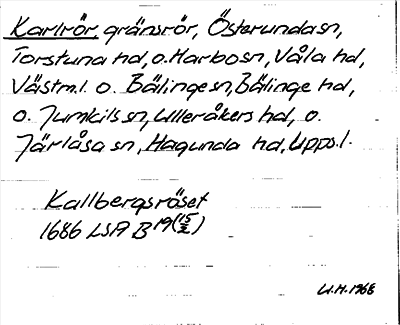 Karlrör, gränsrör, Österunda sn,
Torstuna hd, o. Harbo sn, Våla hd,
Västm.l. o. Bälinge sn, Bälinge hd,
o. Jumkils sn, Ulleråkers hd, o.
Järlåsa sn, Hagunda hd, Upps.l.
Kallbergsröset
1686 LSA B 19 (15/2)
U.H. 1968